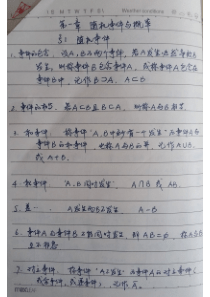 第一章 随机事件与概率
§1 随机事件
1. 事件的包含. 设A,B为两个事件, 若A发生必然导致B
发生, 则称事件B包含事件A, 或称事件A包含在
事件B中, 记作 B⊃A, A⊂B
2. 事件的相等. 若A⊂B且B⊂A, 则称A与B相等.
3. 和事件. 称事件"A,B中至少有一个发生"为事件A与
事件B的和事件, 也称A与B的并, 记作A∪B,
或 A+B.
4. 积事件. "A,B同时发生". A∩B 或 AB.
5. 差. A发生而B不发生. A-B
6. 事件A与事件B不能同时发生, 即AB=∅, 称A与B
互不相容
7. 对立事件. 称事件"A不发生"为事件A的对立事件(